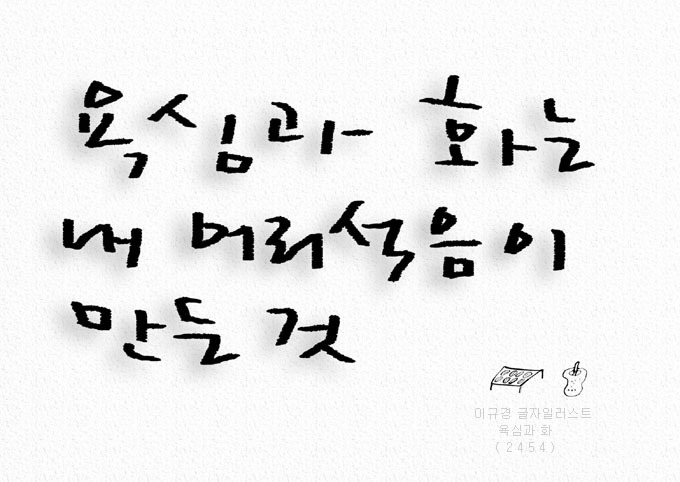 욕심과 화는
내 어리석음이
만든 것
이규경 글자일러스트
욕심과 화
( 2 4 5 4 )